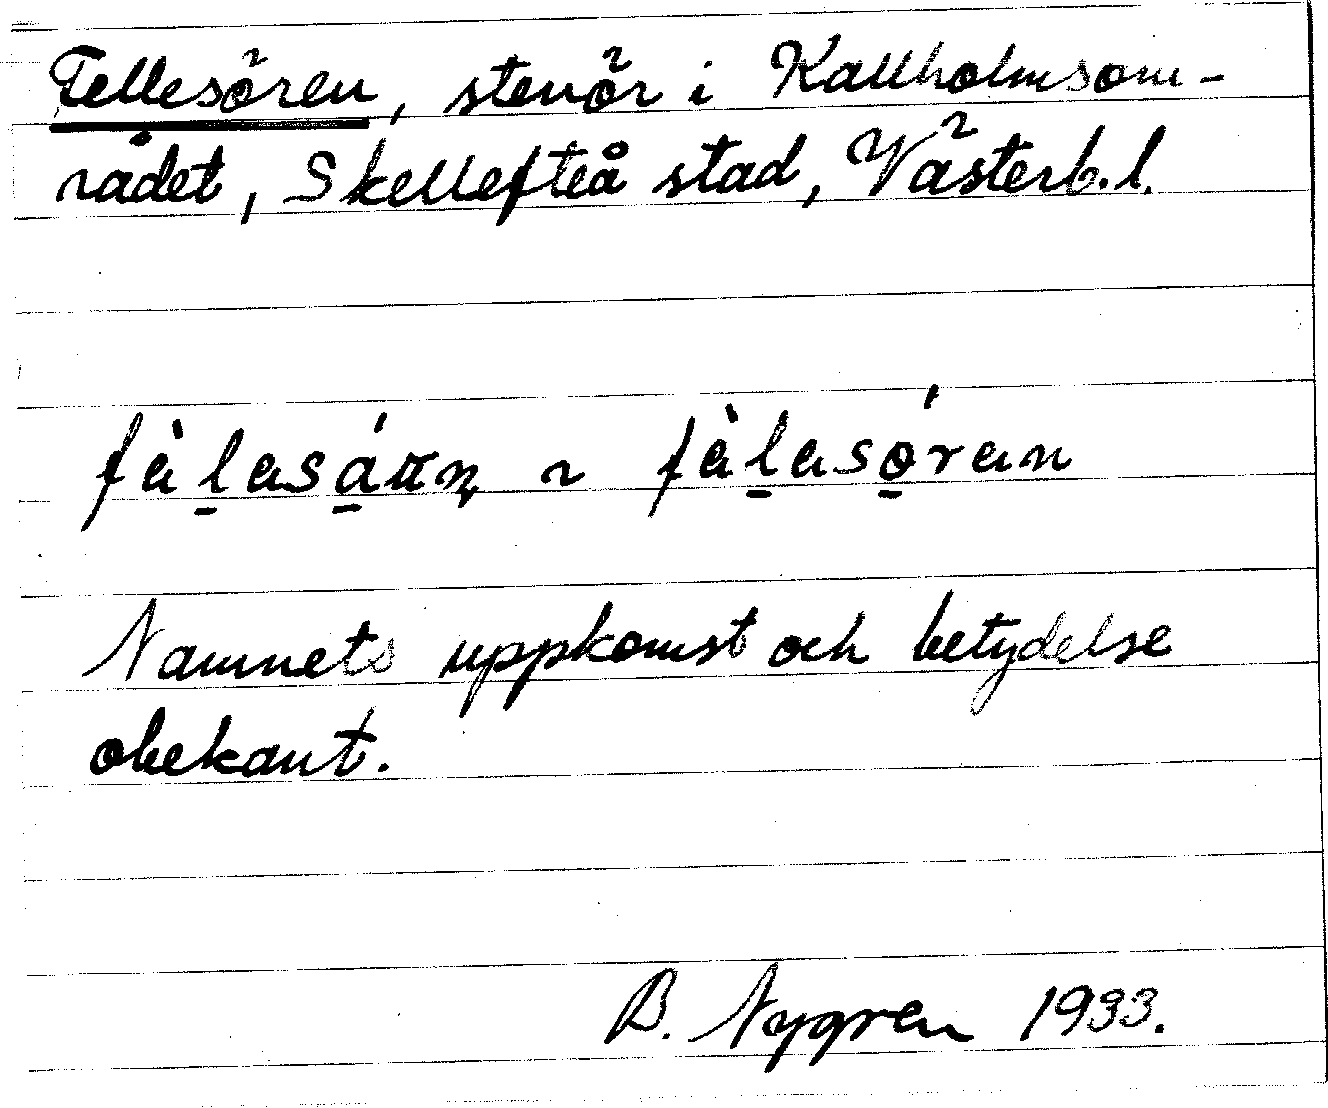 Fellesören, stenör i Kallholmsom-
rådet, Skellefteå stad, Västerb. l.
Namnets uppkomst och betydelse
obekant.
B. Nygren 1933.